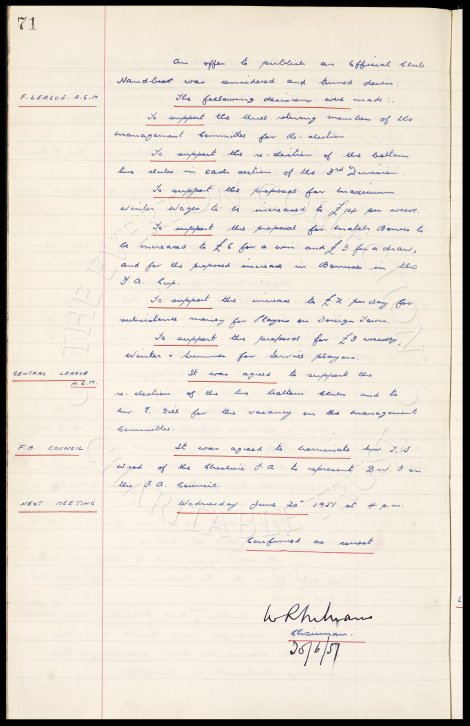 71
An offer to publish an Official Club
Handbook was considered and turned down.
F. LEAGUE. A.G.M
The following decisions were made:-
To support the three retiring members of the
management Committee for Re-election
To support the re-election of the bottom
two clubs in each section of the 3rd Division.
To support the proposal for maximum
winter wages to be increased to £14 per week.
To support the proposal for match Bonus to
be increased to £6 for a win and £3 for a draw,
and for the proposed increase in Bonuses in the
F.A. Cup.
To support the increase to £2 per day for
subsistence money for Players on Foreign Tours.
To support the proposal for £3 weekly,
Winter & Summer for Service players.
CENTRAL LEAGUE
A.G.M.
It was agreed to support the
re-election of the two bottom clubs and to
for the vacancy on the management
Committee.
F.A. COUNCIL
It was agreed to nominate
Wood of the Cheshire F.A. to represent Div. 3 on
the F.A. Council.
NEXT MEETING
Wednesday June 20th 1951 at 4 p.m.
Confirmed as correct
Chairman.
20/6/51
THE EVERTON COLLECTION
CHARITABLE TRUST